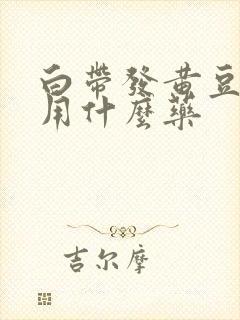 白帶發黄豆
用什麼藥
吉尔摩